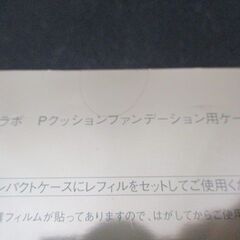 ラボ Pクッションファンデーション用ケー
ンパクトケースにレフィルをセットしてご使用くだ
フィルムが貼ってありますので、はがしてからご使用